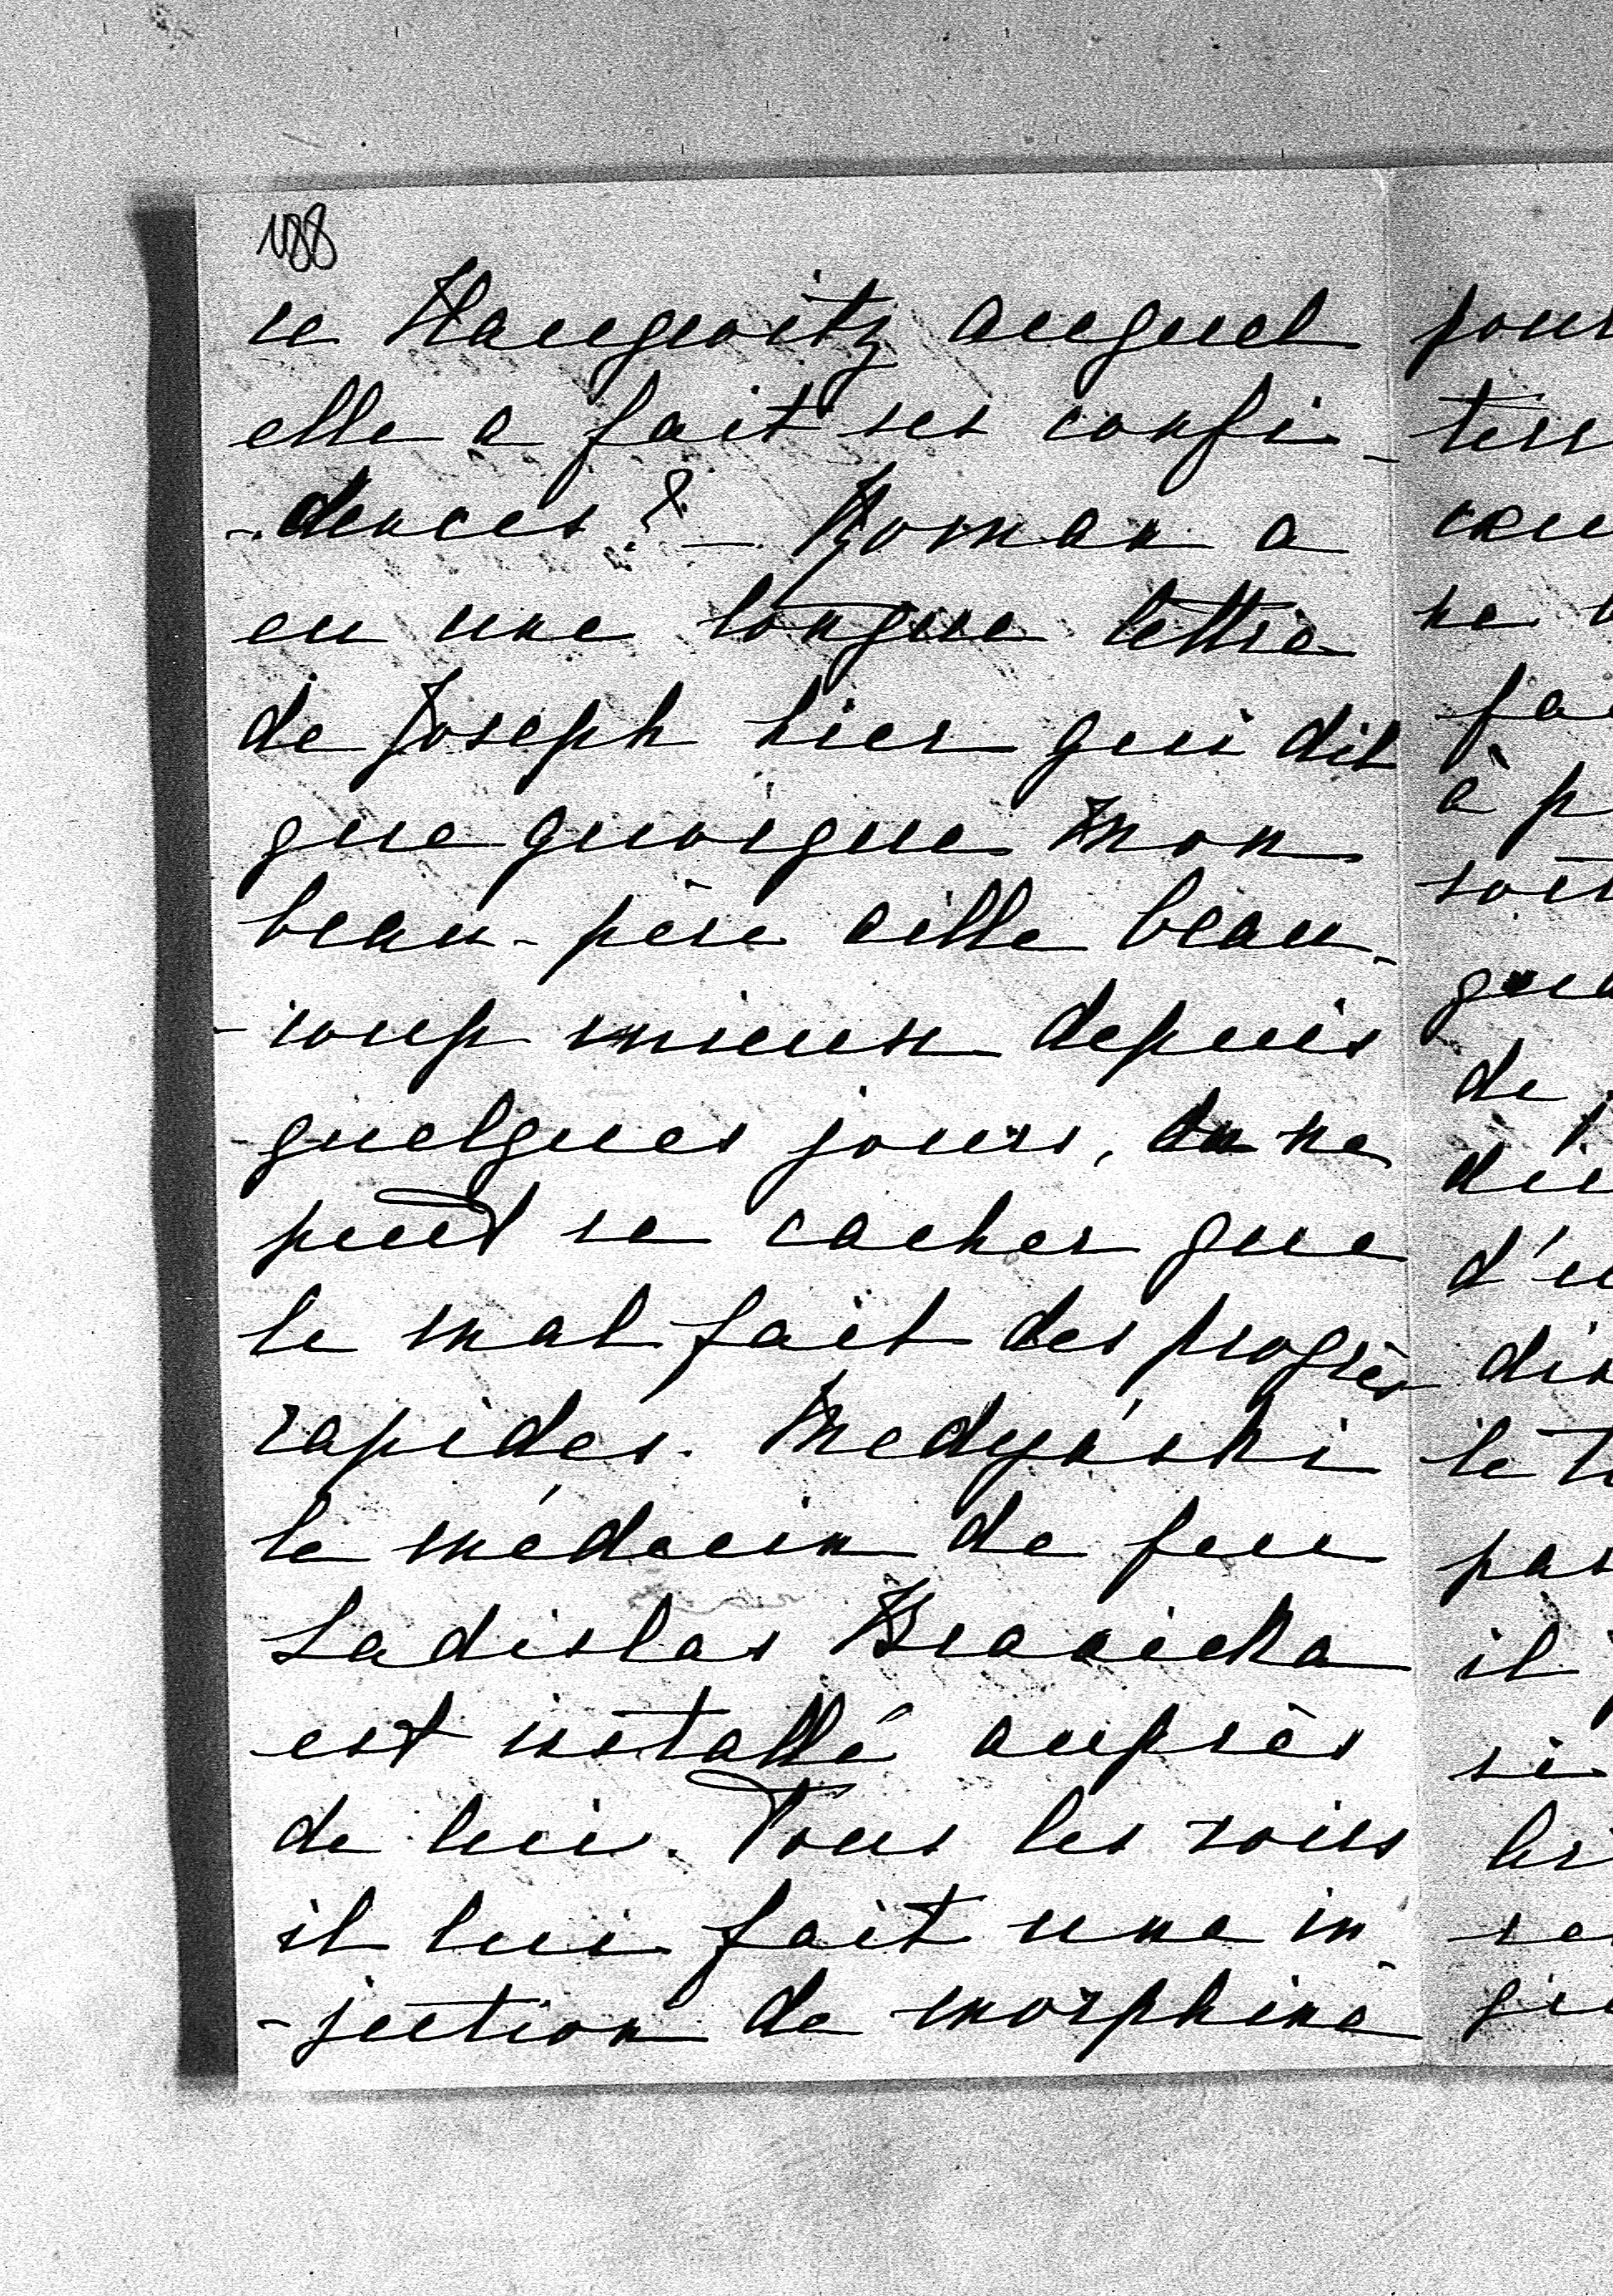 188
ce Haugwitz auquel
elle a fait ses confi-
-dences? - Roman a
eu une longue lettre
de Joseph hier qui dit
que quoique mon
beau-père aille beau-
-coup mieux depuis
quelques jours, on ne
peut se cacher que
le mal fait des progrès
rapides. Medyński
le médecin de feu
Ladislas Branicka
est installé auprès
de lui. Tous les soirs
il lui fait une in-
-jection de morphine